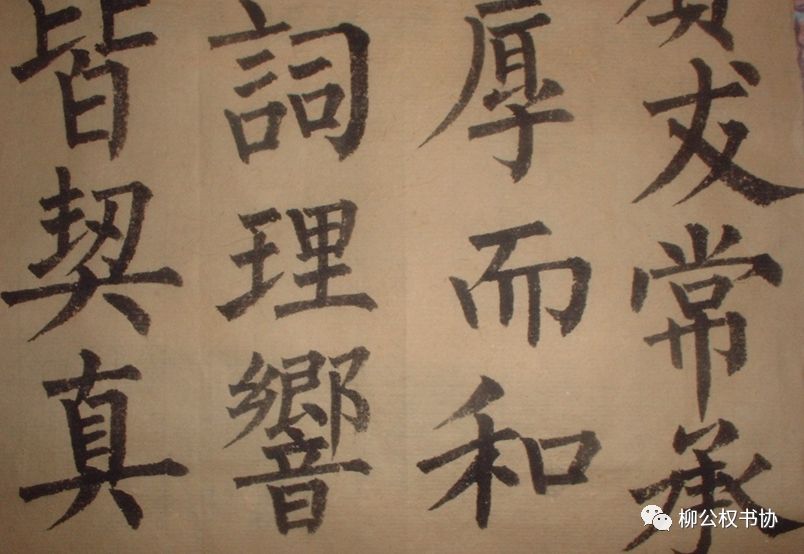 賓友常承
厚而和
詞理響
皆契真
柳公权书协